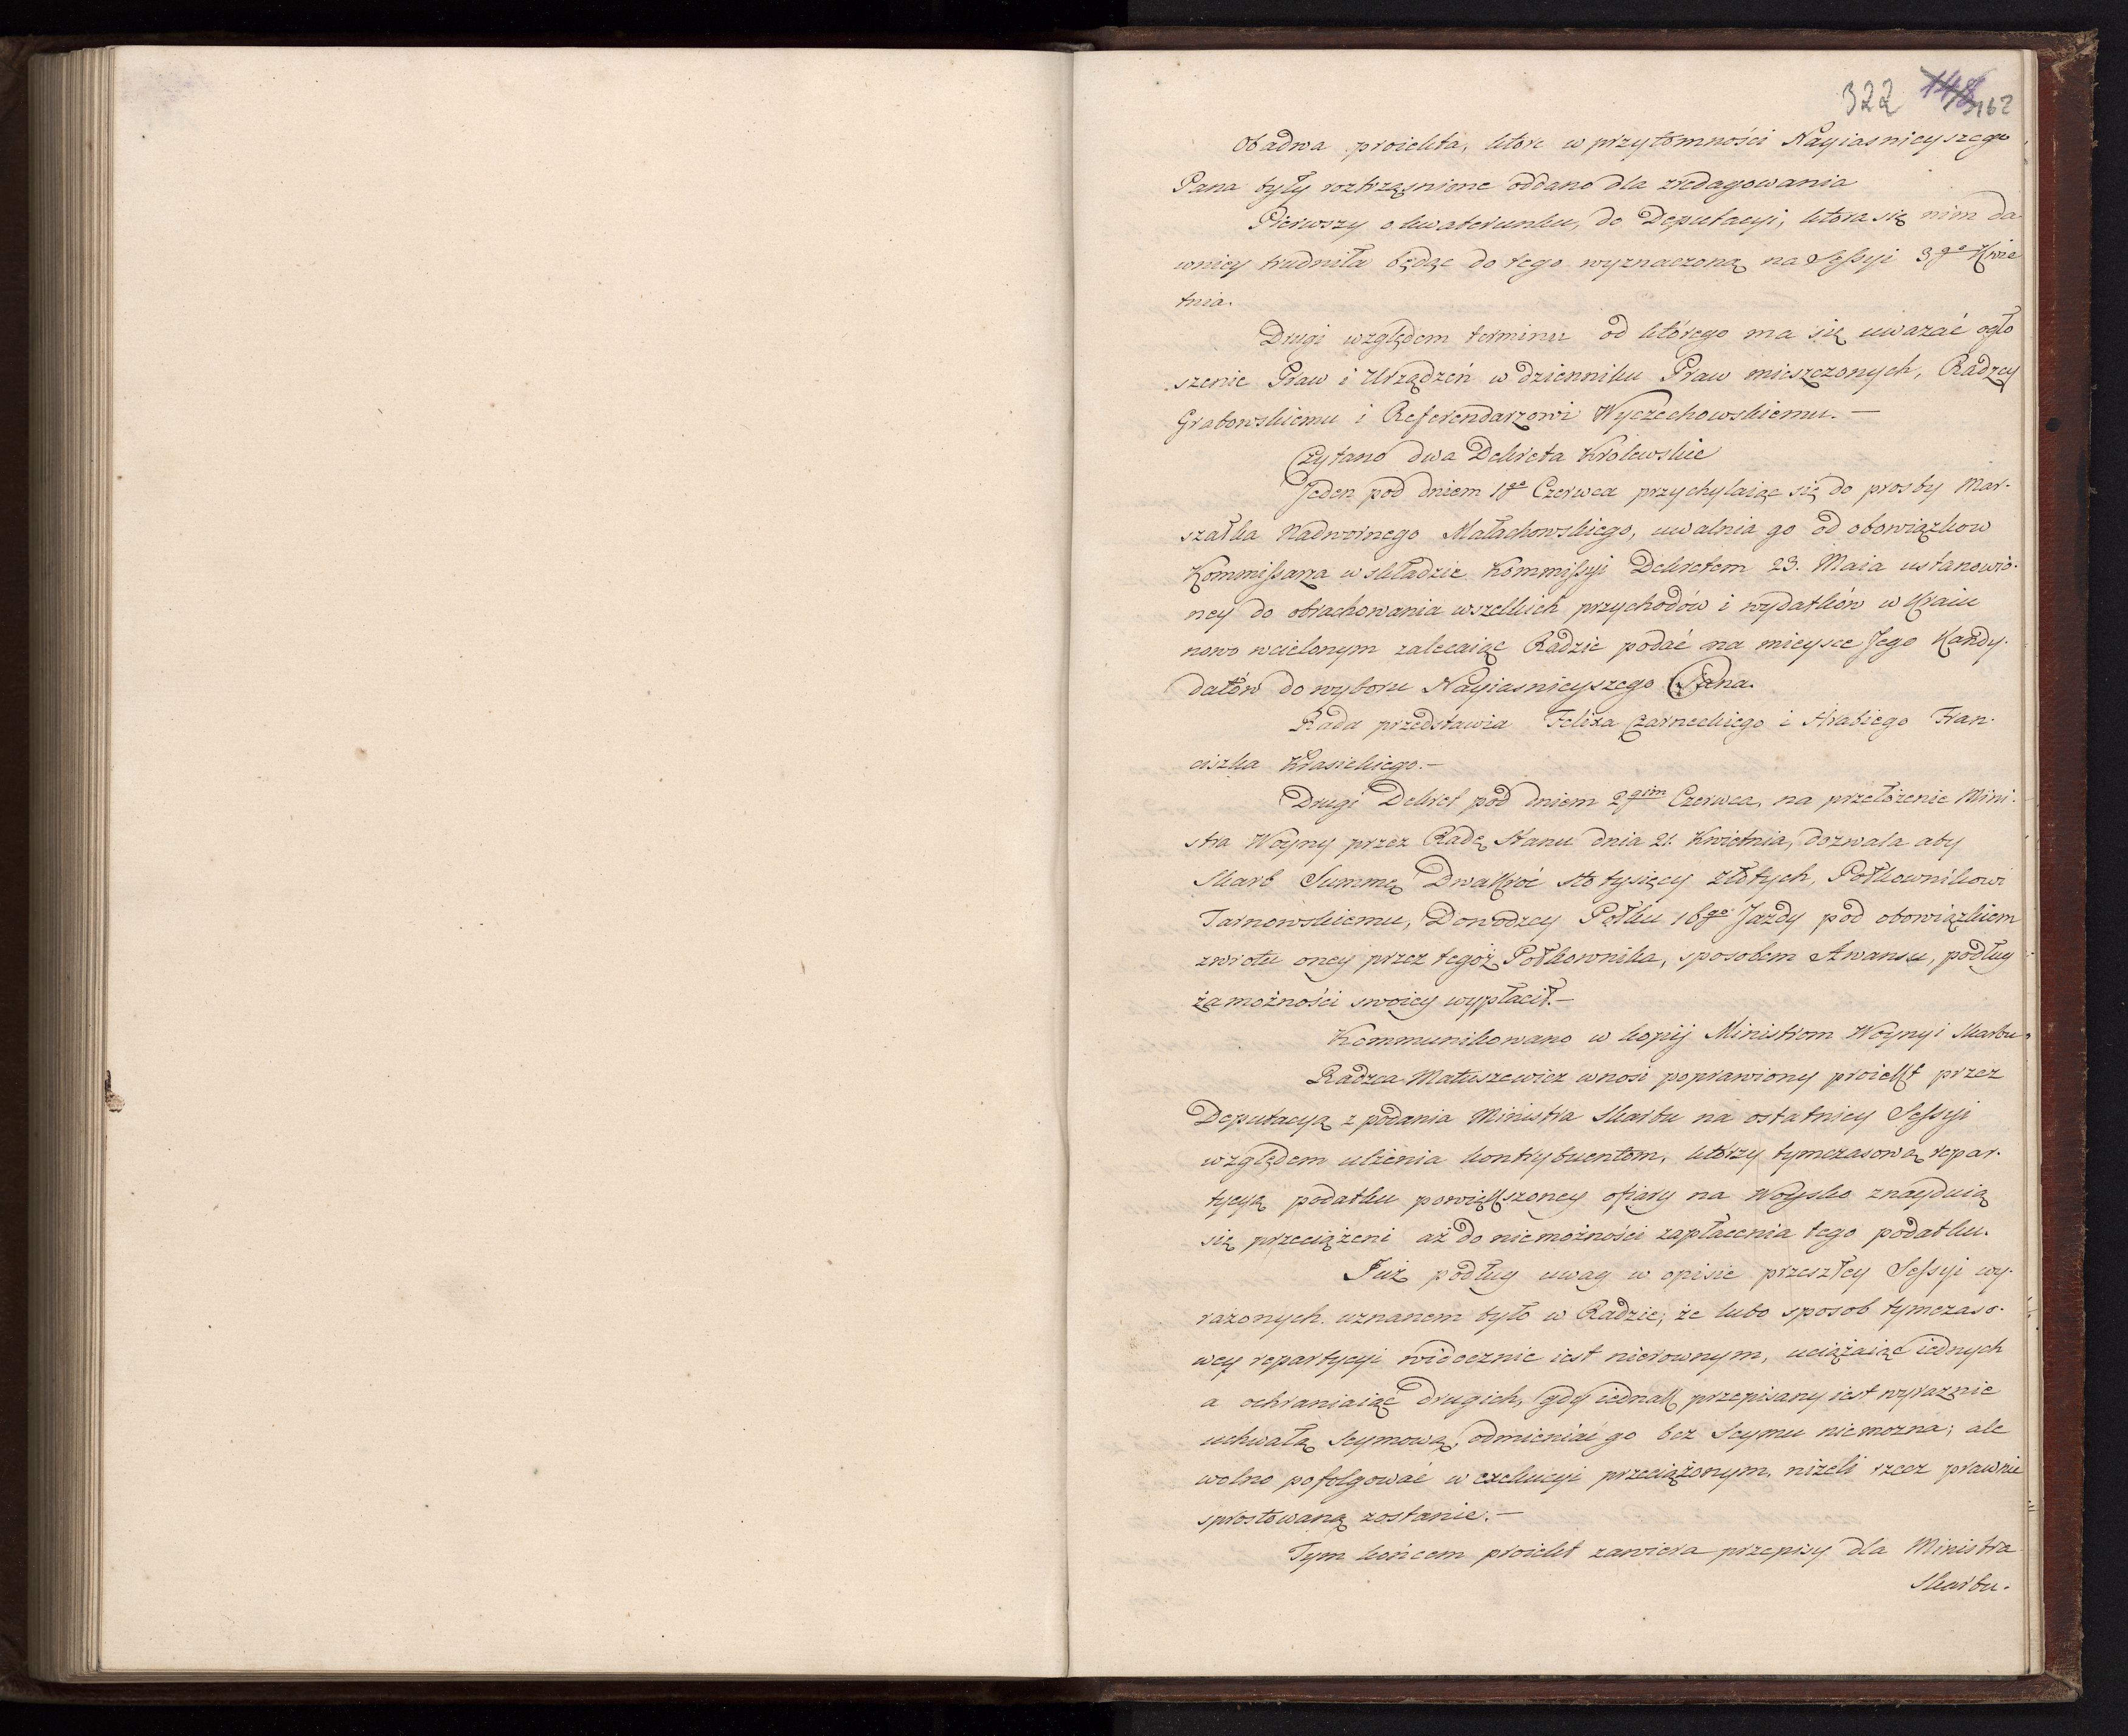 322 148 162
Obadwa proiekta, ktore w przytomności Nayiasnieyszego
Pana były roztrząsnione oddano dla zredagowania
Pierwszy o kwaterunku, do Deputacyi, ktora się nim da
wniey trudniła będąc do tego wyznaczoną na Sessyi 3go Kwie
tnia.
Drugi względem terminu od którego ma się uwazać ogło
szenie Praw i Urządzeń w dzienniku Praw mieszczonych, Radzcy
Grabowskiemu i Referendarzowi Wyczechowskiemu. —
Czytano dwa Dekreta Krolewskie
Jeden pod dniem 1go Czerwca przychylaiąc się do prosby Mar-
szałka Nadwornego Małachowskiego, uwalnia go od obowiązkow
Kommissarza w składzie Kommissyi Dekretem 23. Maia ustanowio-
ney do obrachowania wszelkich przychodów i wydatków w Kraiu
nowo wcielonym zalecaiąc Radzie podać na mieysce Jego Kandy-
datów do wyboru Nayiasnieyszego Pana.
Rada przedstawia Felixa Czarneckiego i Hrabiego Fran-
ciszka Krasickiego. —
Drugi Dekret pod dniem 2gim Czerwca, na przełożenie Mini-
stra Woyny przez Radę Stanu dnia 21. Kwietnia, dozwala aby
Skarb Summę Dwakroć sto tysięcy złotych, Połkownikowi
Tarnowskiemu, Dowodzcy Pułku 16go Jazdy pod obowiązkiem
zwrotu oney przez tegoż Połkownika, sposobem Awansu, podług
zamożności swoiey wypłacił. —
Kommunikowano w kopij Ministrom Woyny i Skarbu
Radzca Matuszewicz wnosi poprawiony proiekt przez
Deputacyą z podania Ministra Skarbu na ostatniey Sessyi
względem ulżenia kontrybuentom, którzy tymczasową repar-
tycyą podatku powiększoney ofiary na Woysko znayduią
się przeciążeni aż do niemożności zapłacenia tego podatku.
Już podług uwag w opisie przeszłey Sessyi wy-
rażonych uznanem było w Radzie, że lubo sposob tymczaso-
wey repartycyi widocznie iest nierownym, uciążaiąc iednych
a ochraniaiąc drugich, gdy iednak przepisany iest wyraznie
uchwałą Seymową, odmieniać go bez Seymu niemożna; ale
wolno pofolgować w exekucyi przeciążonym, niżeli rzecz prawnie
sprostowaną zostanie. —
Tym końcem proiekt zawiera przepisy dla Ministra
Skarbu.